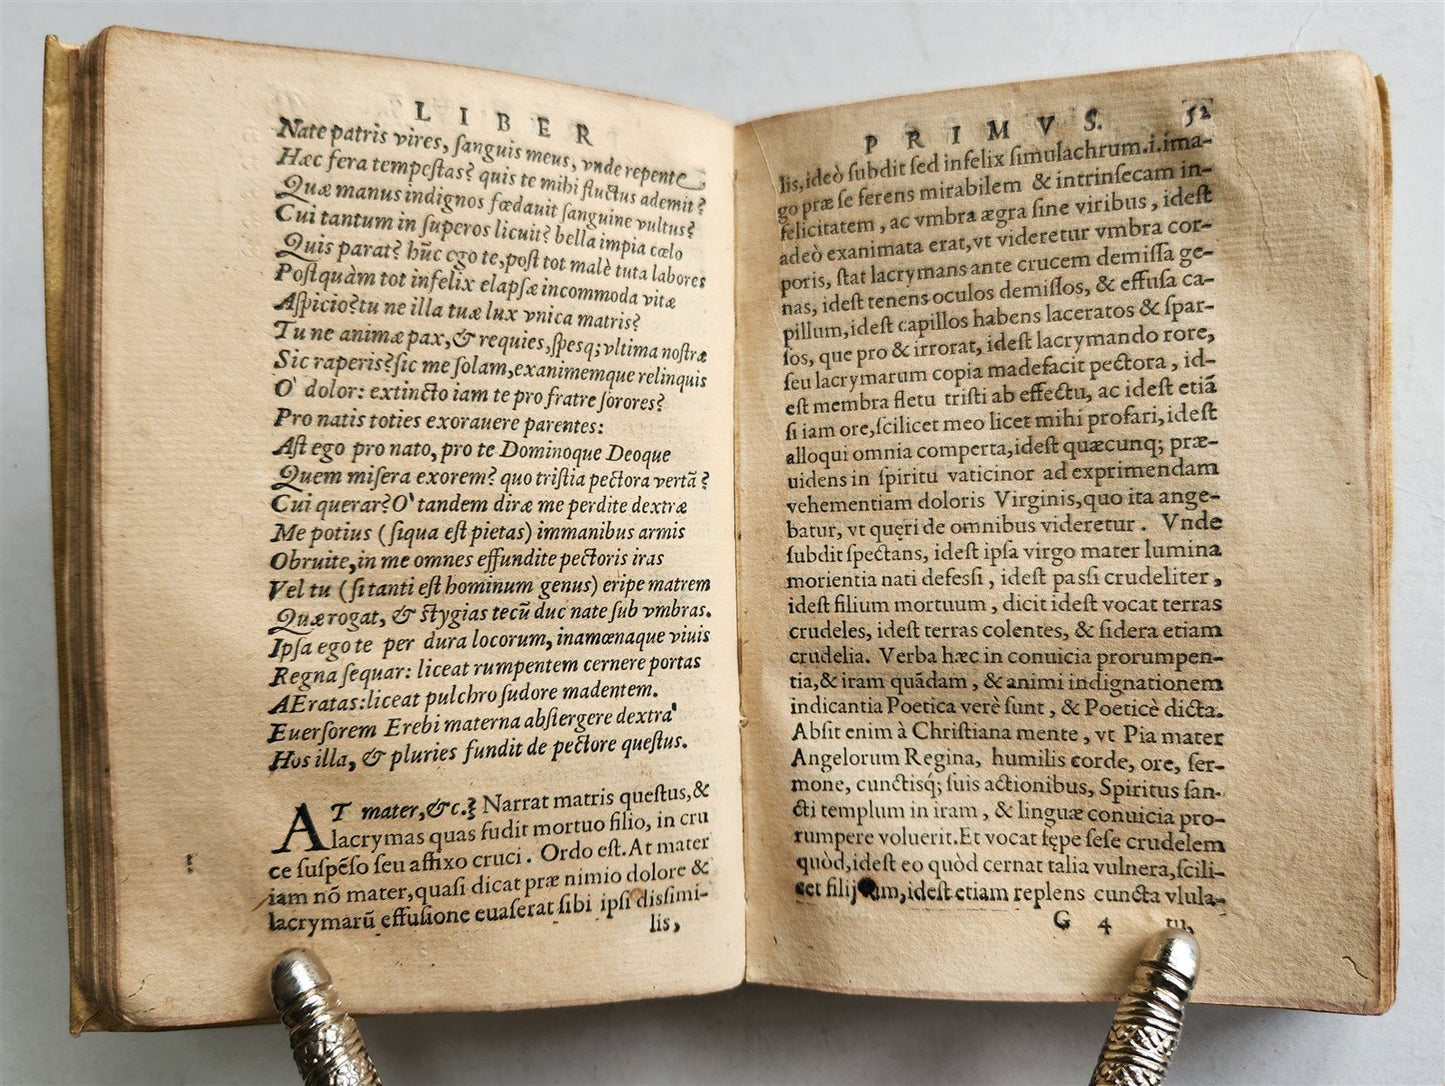 LIBER
Nate patris vires, ſanguis meus, vnde repente
Hæc fera tempeſtas? quis te mihi fluctus ademit?
Quæ manus indignos fœdauit ſanguine vultus?
Cui tantum in ſuperos licuit? bella impia cœlo
Quis parat? hũc ego te, poſt tot malè tuta labores
Poſtquàm tot infelix elapſæ incommoda vitæ
Aſpicio? tu ne illa tuæ lux vnica matris?
Tu ne animæ pax, & requies, ſpesq; vltima noſtræ
Sic raperis? ſic me ſolam, exanimemque relinquis
O' dolor: extincto iam te pro fratre ſorores?
Pro natis toties exorauere parentes:
Aſt ego pro nato, pro te Dominoque Deoque
Quem miſera exorem? quo triſtia pectora vertã?
Cui querar? O' tandem diræ me perdite dextræ
Me potius (ſiqua eſt pietas) immanibus armis
Obruite, in me omnes effundite pectoris iras
Vel tu (ſi tanti eſt hominum genus) eripe matrem
Quæ rogat, & ſtygias tecũ duc nate ſub vmbras.
Ipſa ego te per dura locorum, inamœnaque viuis
Regna ſequar: liceat rumpentem cernere portas
AEratas: liceat pulchro ſudore madentem.
Euerſorem Erebi materna abſtergere dextra'
Hos illa, & pluries fundit de pectore queſtus.
AT mater, &c.? Narrat matris queſtus, &
lacrymas quas fudit mortuo filio, in cru
ce ſuſpẽſo ſeu affixo cruci. Ordo eſt. At mater
iam nõ mater, quaſi dicat præ nimio dolore &
lacrymarũ effuſione euaſerat ſibi ipſi diſſimi-
lis,
PRIMVS. 52
lis, ideò ſubdit ſed infelix ſimulachrum .i. ima-
go præ ſe ferens mirabilem & intrinſecam in-
felicitatem, ac vmbra ægra ſine viribus, ideſt
adeò exanimata erat, vt videretur vmbra cor-
poris, ſtat lacrymans ante crucem demiſſa ge-
nas, ideſt tenens oculos demiſſos, & effuſa ca-
pillum, ideſt capillos habens laceratos & ſpar-
ſos, que pro & irrorat, ideſt lacrymando rore,
ſeu lacrymarum copia madefacit pectora, id-
eſt membra fletu triſti ab effectu, ac ideſt etiã
ſi iam ore, ſcilicet meo licet mihi profari, ideſt
alloqui omnia comperta, ideſt quæcunq; præ-
uidens in ſpiritu vaticinor ad exprimendam
vehementiam doloris Virginis, quo ita ange-
batur, vt quęri de omnibus videretur. Vnde
ſubdit ſpectans, ideſt ipſa virgo mater lumina
morientia nati defeſſi, ideſt paſſi crudeliter,
ideſt filium mortuum, dicit ideſt vocat terras
crudeles, ideſt terras colentes, & ſidera etiam
crudelia. Verba hæc in conuicia prorumpen-
tia, & iram quãdam, & animi indignationem
indicantia Poetica verè ſunt, & Poeticè dicta.
Abſit enim à Chriſtiana mente, vt Pia mater
Angelorum Regina, humilis corde, ore, ſer-
mone, cunctiſq́; ſuis actionibus, Spiritus ſan-
cti templum in iram, & linguæ conuicia pro-
rumpere voluerit. Et vocat ſępe ſeſe crudelem
quòd, ideſt eo quòd cernat talia vulnera, ſcili-
cet filij, ideſt etiam replens cuncta vlula-
G 4 tu,